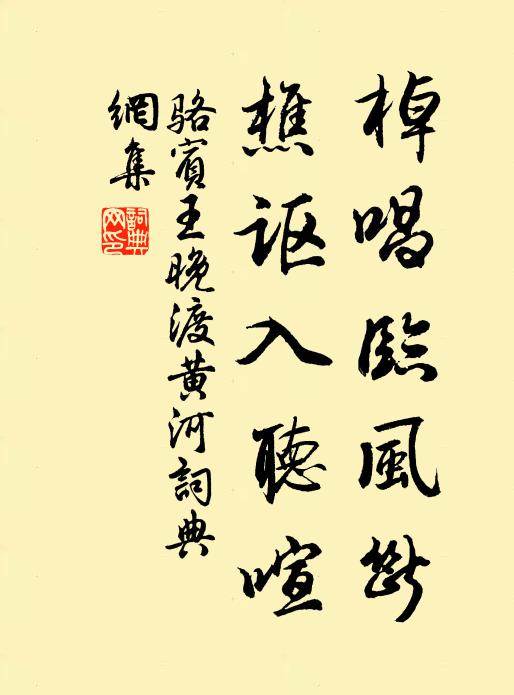 棹唱臨風斷
樵謳入聽喧
駱賓王晚渡黄河詞典
網集
詞典
网印